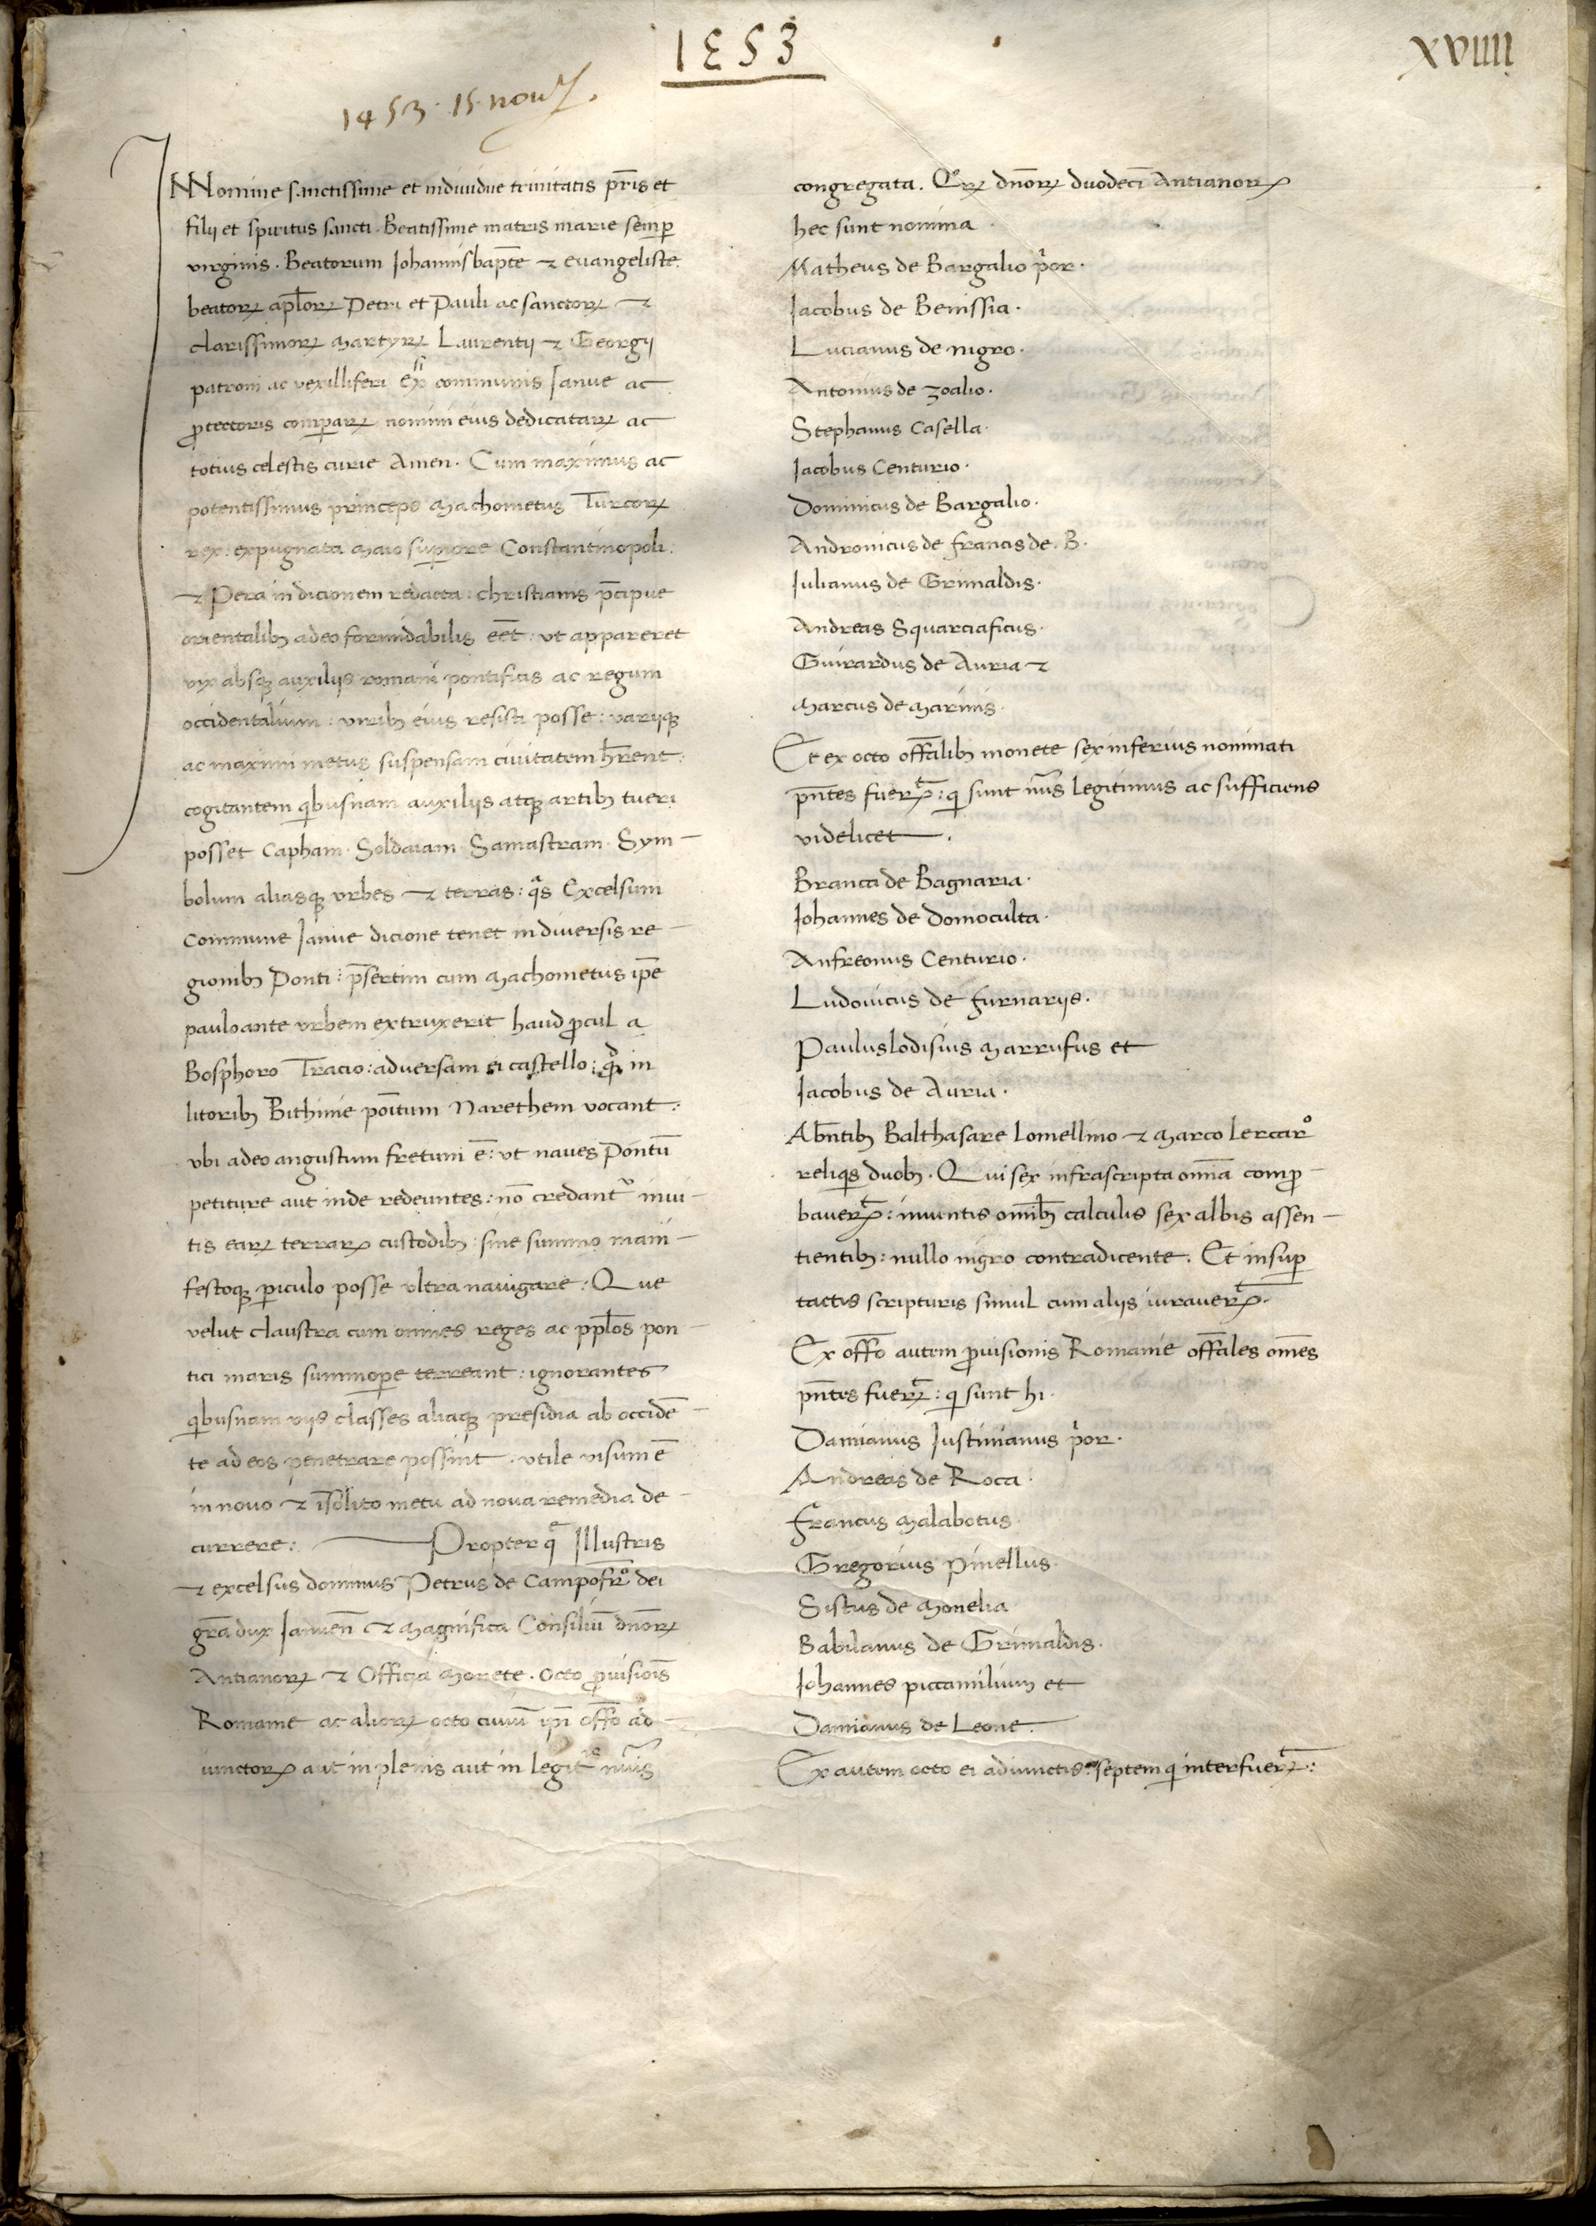 1453
XVIIII
1453. 15 nou
IN Nomine sanctissime et individue trinitatis pr̄is et
filij et spiritus sancti. Beatissime matris marie semp
virginis. Beatorum Johannis bapt̄e et evangeliste.
beatoꝝ apl̄oꝝ Petri et Pauli ac sanctoꝝ et
clarissimoꝝ martyrꝝ Laurentij et Georgij
patroni ac vexilliferi exsi communis Janue ac
ꝓtectoris comꝑarꝝ nomini eius dedicatarꝝ ac
totius celestis curie Amen. Cum maximus ac
potentissimus princeps Machometus Turcoꝝ
rex: expugnata Maio suꝑiore Constantinopoli:
et Pera in dicionem redacta: christianis p̄cipue
orientalibꝫ adeo formidabilis eēt: ut appareret
vix absqꝫ auxilijs romani pontificis ac regum
occidentalium: viribꝫ eius resisti posse: varijqꝫ
ac maximi metus suspensam civitatem h̄rent:
cogitantem qibusnam auxilijs atqꝫ artibꝫ tueri
posset Capham. Soldaiam. Samastram. Sym-
bolum aliasqꝫ urbes et terras: qas Excelsum
Commune Janue dicione tenet in diversis re-
gionibꝫ Ponti: p̄sertim cum Machometus ip̄e
pauloante urbem extruxerit haud ꝓcul a
Bosphoro Tracio: adversam ei castello: qd in
litoribꝫ Bithinie poītum Narethem vocant:
ubi adeo angustum fretum ē: ut naves Pontū
petiture aut inde redeuntes: nō credantur invi-
tis earꝝ terrarꝝ custodibꝫ sine summo mani-
festoqꝫ ꝑiculo posse ultra navigare: Que
velut claustra cum omnes reges ac ppl̄os pon-
tici maris summoꝑe terreant: ignorantes
qibusnam vijs classes aliaqꝫ presidia ab occidē-
te ad eos penetrare possint. utile visum ē
in novo et īsolito metu ad nova remedia de-
currere: Propter qe Illustris
et excelsus dominus Petrus de Campofro dei
gr̄a dux Januen̄ et Magnifica Consiliū dn̄oꝝ
Antianoꝝ et Officia Monete. Octo ꝓvisiois
Romanie ac alioꝝ octo civiū ip̄i off̄o ad-
iunctoꝝ aut in plenis aut in legitis nūis
congregata. Qrꝝ dn̄oꝝ duodecī Antianoꝝ
hec sunt nomina
Matheus de Bargalio pior.
Jacobus de Benissia.
Lucianus de nigro.
Antonius de zoalio.
Stephanus Casella.
Jacobus Centurio.
Dominicus de Bargalio.
Andronicus de francis de. B.
Julianus de Grimaldis.
Andreas Squarciaficus.
Guirardus de Auria et
Marcus de Marinis.
Et ex octo off̄alibꝫ monete sex inferius nominati
pn̄tes fuerꝝt: qi sunt nūs legitimus ac sufficiens
videlicet.
Branca de Bagnaria.
Johannes de Domoculta.
Anfreonus Centurio.
Ludovicus de furnarijs.
Pauluslodisius Marrufus et
Jacobus de Auria.
Abn̄tibꝫ Balthasare Lomellino et Marco lercaro
reliqis duobꝫ. Qui sex infrascripta omīa compro-
baverꝝt: inventis omībꝫ calculis sex albis assen-
tientibꝫ: nullo nigro contradicente. Et insuꝑ
tactis scripturis simul cum alijs iuraverꝝt.
Ex off̄o autem ꝓvisionis Romanie off̄ales omēs
pn̄tes fuerꝝt: qi sunt hi.
Damianus Justinianus pior.
Andreas de Roca.
francus Malabotus.
Gregorius Pinellus.
Sistus de Monelia
Babilanus de Grimaldis.
Johannes piccamilium et
Damianus de Leone.
Ex autem octo ei adiunctis: septem qi interfuerꝝt: